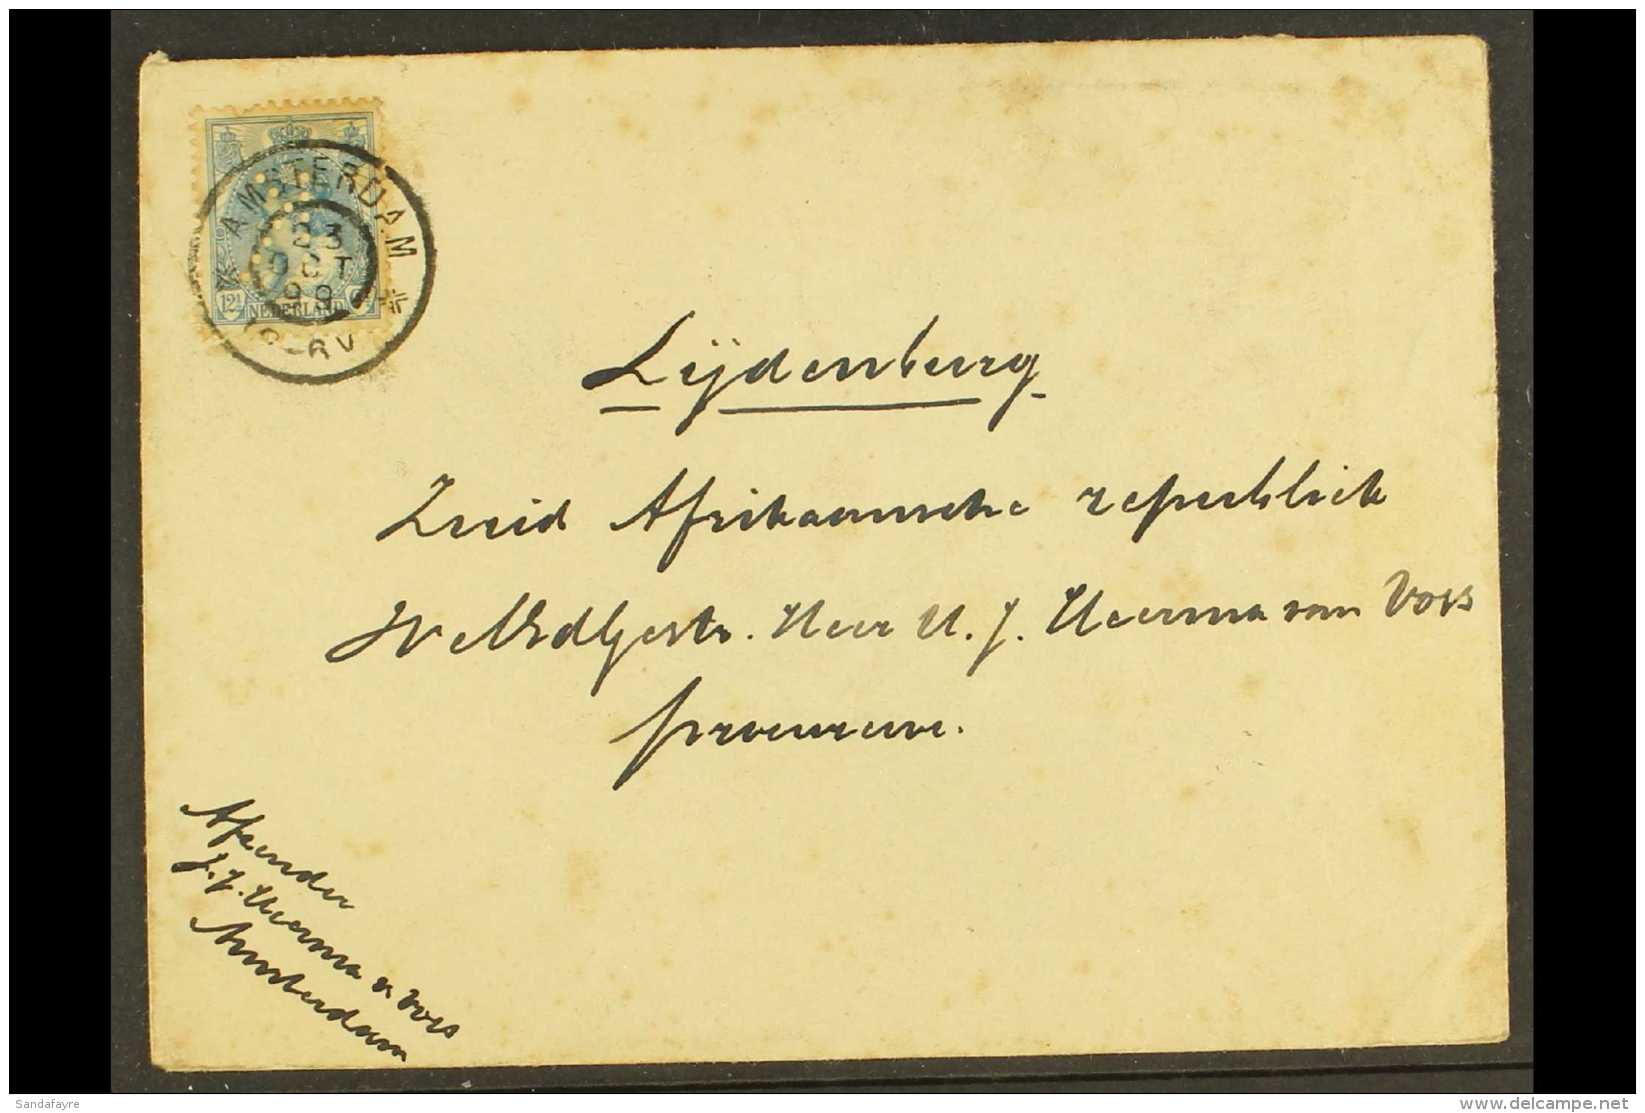 AMSTERDAM
23
OCT
99
10-6V
12½
NEDERLAND
Lijdenburg
Zuid Afrikaansche republiek
WelEdlGestr. Heer U. J. Heerma van Voss
procureur.
Afzender
J. J. Heerma v. Voss
Amsterdam
Sandafayre
www.delcampe.net